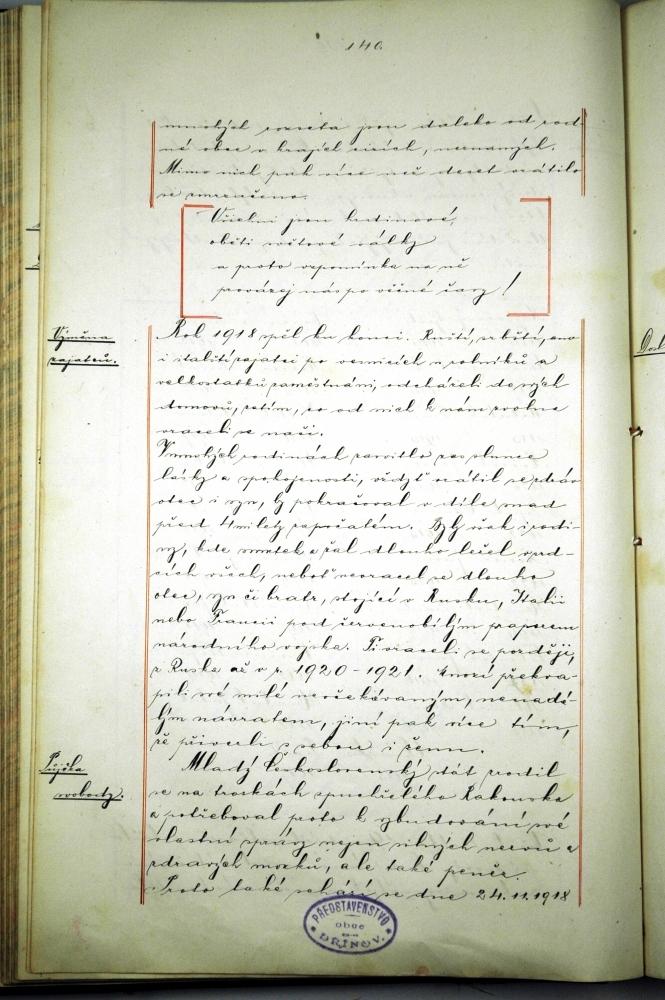 140.
mnohých rozseta jsou daleko od rod-
né obce v krajích cizích, neznámých.
Mimo nich pak více než deset vrátilo
se zmrzačeno.
Všichni jsou hrdinové,
oběti světové války
a proto vzpomínka na ně
provázej nás po věčné časy!
Výměna
zajatců.
Rok 1918 spěl ku konci. Ruští, srbští, ano
i italští zajatci po vesnicích u rolníků a
velkostatků zaměstnáni, odcházeli do svých
domovů, zatím, co od nich k nám zvolna
vraceli se naši.
V mnohých rodinách zasvitlo zas slunce
lásky a spokojenosti, vždyť vrátil se zdráv
otec i syn, by pokračoval v díle snad
před 4mi lety započatém. Byly však i rodi-
ny, kde smutek a žal dlouho ležel v srd-
cích všech, neboť nevracel se dlouho
otec, syn či bratr, stojící v Rusku, Italii
nebo Francii pod červenobílým praporem
národního vojska. Ti vraceli se později,
z Ruska až v r. 1920-1921. Mnozí překva-
pili své milé neočekávaným, nenadá-
lým návratem, jiní pak více tím,
že přivezli s sebou i ženu.
Půjčka
svobody.
Mladý Československý stát zrodil
se na troskách zpuchřelého Rakouska
a potřeboval proto k vybudování své
vlastní správy nejen silných nervů a
zdravých mozků, ale také peněz.
Proto také schází se dne 24.11.1918
PŘEDSTAVENSTVO
obce
DŘÍNOV.